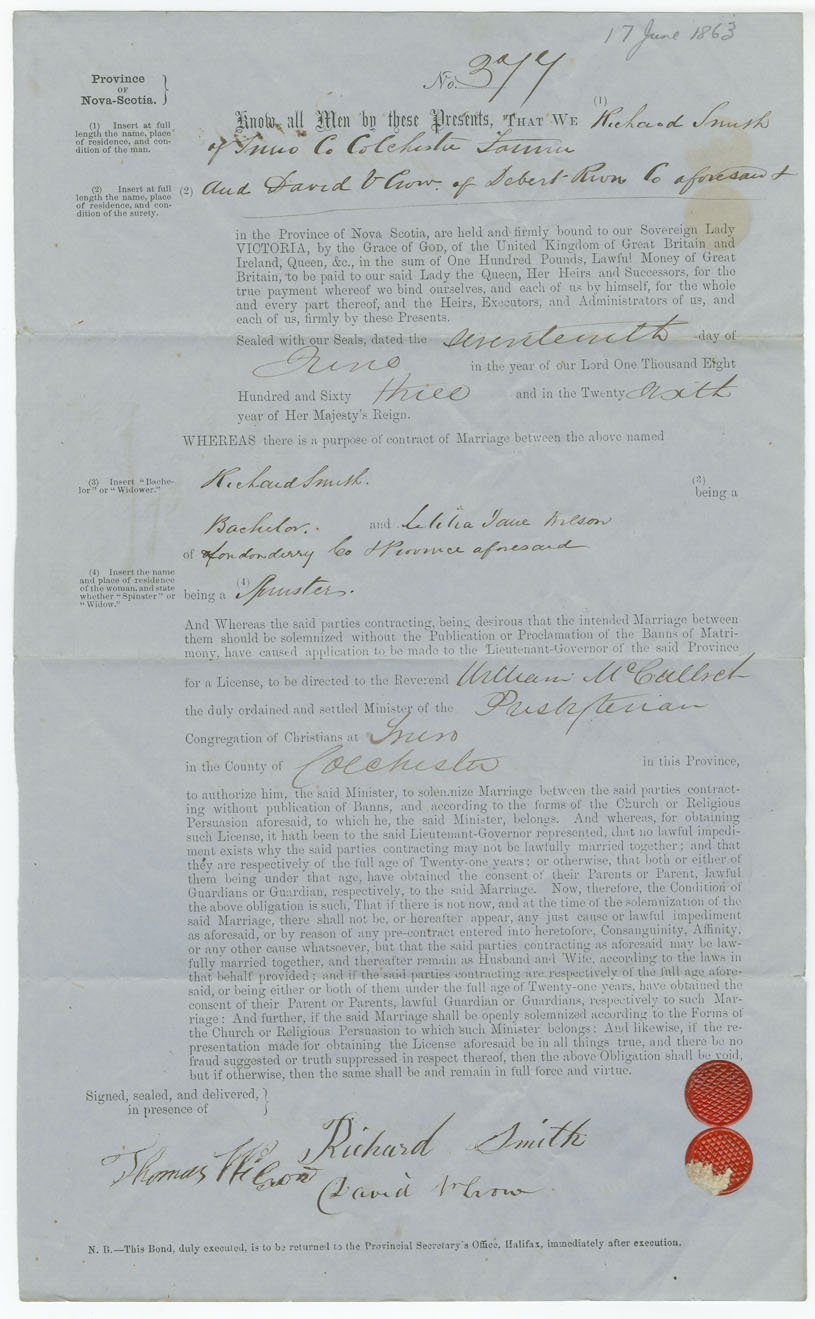 17 June 1863
Province
OF
Nova-Scotia.
No. 377
(1) Insert at full
length the name, place
of residence, and con-
dition of the man.
Know all Men by these Presents, THAT WE (1) Richard Smith
of Truro Co Colchester
(2) Insert at full
length the name, place
of residence, and con-
dition of the surety.
(2) And David V Crow. of Debert River Co aforesaid
in the Province of Nova Scotia, are held and firmly bound to our Sovereign Lady
VICTORIA, by the Grace of GOD, of the United Kingdom of Great Britain and
Ireland, Queen, &c., in the sum of One Hundred Pounds, Lawful Money of Great
Britain, to be paid to our said Lady the Queen, Her Heirs and Successors, for the
true payment whereof we bind ourselves, and each of us by himself, for the whole
and every part thereof, and the Heirs, Executors, and Administrators of us, and
each of us, firmly by these Presents.
Sealed with our Seals, dated the seventeenth day of
June in the year of our Lord One Thousand Eight
Hundred and Sixty three and in the Twenty sixth
year of Her Majesty's Reign.
WHEREAS there is a purpose of contract of Marriage between the above named
(3) Insert "Bache-
lor" or "Widower."
Richard Smith. (3)
being a
Bachelor. and Letitia Jane Wilson
of Londonderry Co & Province aforesaid
(4) Insert the name
and place of residence
of the woman, and state
whether "Spinster" or
"Widow."
being a (4) Spinster.
And Whereas the said parties contracting, being desirous that the intended Marriage between
them should be solemnized without the Publication or Proclamation of the Banns of Matri-
mony, have caused application to be made to the Lieutenant-Governor of the said Province
for a License, to be directed to the Reverend William McCulloch
the duly ordained and settled Minister of the Presbyterian
Congregation of Christians at Truro
in the County of Colchester in this Province,
to authorize him, the said Minister, to solemnize Marriage between the said parties contract-
ing without publication of Banns, and according to the forms of the Church or Religious
Persuasion aforesaid, to which he, the said Minister, belongs. And whereas, for obtaining
such License, it hath been to the said Lieutenant-Governor represented, that no lawful impedi-
ment exists why the said parties contracting may not be lawfully married together; and that
they are respectively of the full age of Twenty-one years; or otherwise, that both or either of
them being under that age, have obtained the consent of their Parents or Parent, lawful
Guardians or Guardian, respectively, to the said Marriage. Now, therefore, the Condition of
the above obligation is such, That if there is not now, and at the time of the solemnization of the
said Marriage, there shall not be, or hereafter appear, any just cause or lawful impediment
as aforesaid, or by reason of any pre-contract entered into heretofore, Consanguinity, Affinity,
or any other cause whatsoever, but that the said parties contracting as aforesaid may be law-
fully married together, and thereafter remain as Husband and Wife, according to the laws in
that behalf provided; and if the said parties contracting are respectively of the full age afore-
said, or being either or both of them under the full age of Twenty-one years, have obtained the
consent of their Parent or Parents, lawful Guardian or Guardians, respectively to such Mar-
riage: And further, if the said Marriage shall be openly solemnized according to the Forms of
the Church or Religious Persuasion to which such Minister belongs: And likewise, if the re-
presentation made for obtaining the License aforesaid be in all things true, and there be no
fraud suggested or truth suppressed in respect thereof, then the above Obligation shall be void,
but if otherwise, then the same shall be and remain in full force and virtue.
Signed, sealed, and delivered,
in presence of
Richard Smith
Thomas Wilson
David V Crow
N. B.—This Bond, duly executed, is to be returned to the Provincial Secretary's Office, Halifax, immediately after execution.